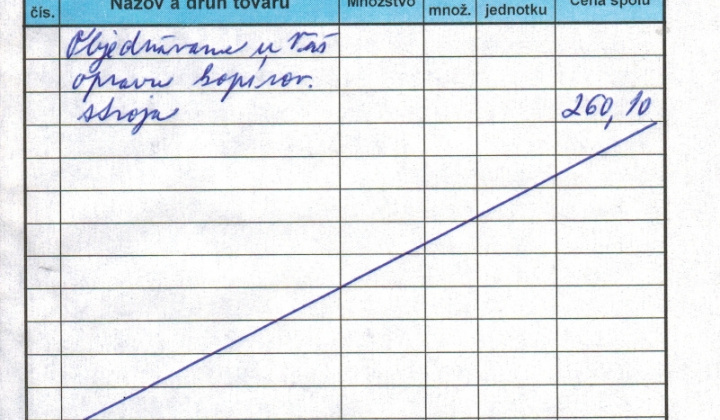 čís. Názov a druh tovaru Množstvo množ. jednotku Cena spolu
Objednávame u Vás
opravu kopírov.
stroja 260,10